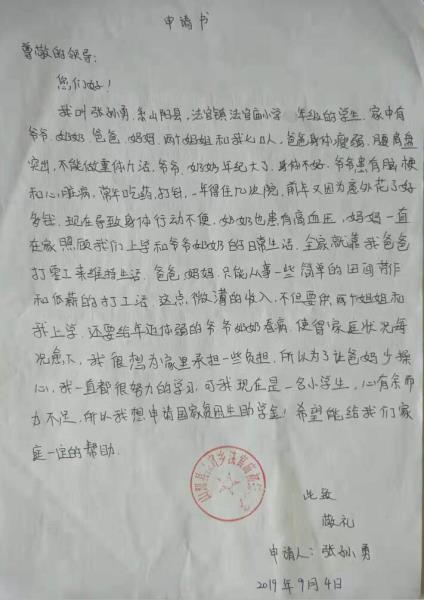 申请书
尊敬的领导:
您们好!
我叫张孙勇,系山阳县,法官镇法官庙小学 年级的学生.家中有
爷爷.奶奶.爸爸,妈妈,两个姐姐和我七口人,爸爸身体瘦弱.腰肩盘
突出,不能做重体力活,爷爷,奶奶年纪大了,身体不好,爷爷患有脑梗
和心脏病,常年吃药,打针,一年得住几次院,前年又因为意外花了好
多钱.现在导致身体行动不便,奶奶也患有高血压,妈妈一直
在家照顾我们上学和爷爷奶奶的日常生活.全家就靠我爸爸
打零工来维持生活.爸爸,妈妈,只能从事一些简单的田间劳作
和低薪的打工活.这点,微薄的收入,不但要供,两个姐姐和
我上学.还要给年迈体弱的爷爷奶奶看病,使得家庭状况每
况愈下,我很想为家里承担一些负担,所以为了让爸妈少操
心,我一直都很努力的学习,可我现在是一名小学生,心有余而
力不足,所以我想申请国家贫困生助学金!希望能给我们家
庭一定的帮助.
此致
敬礼
申请人:张孙勇
2019年9月4日